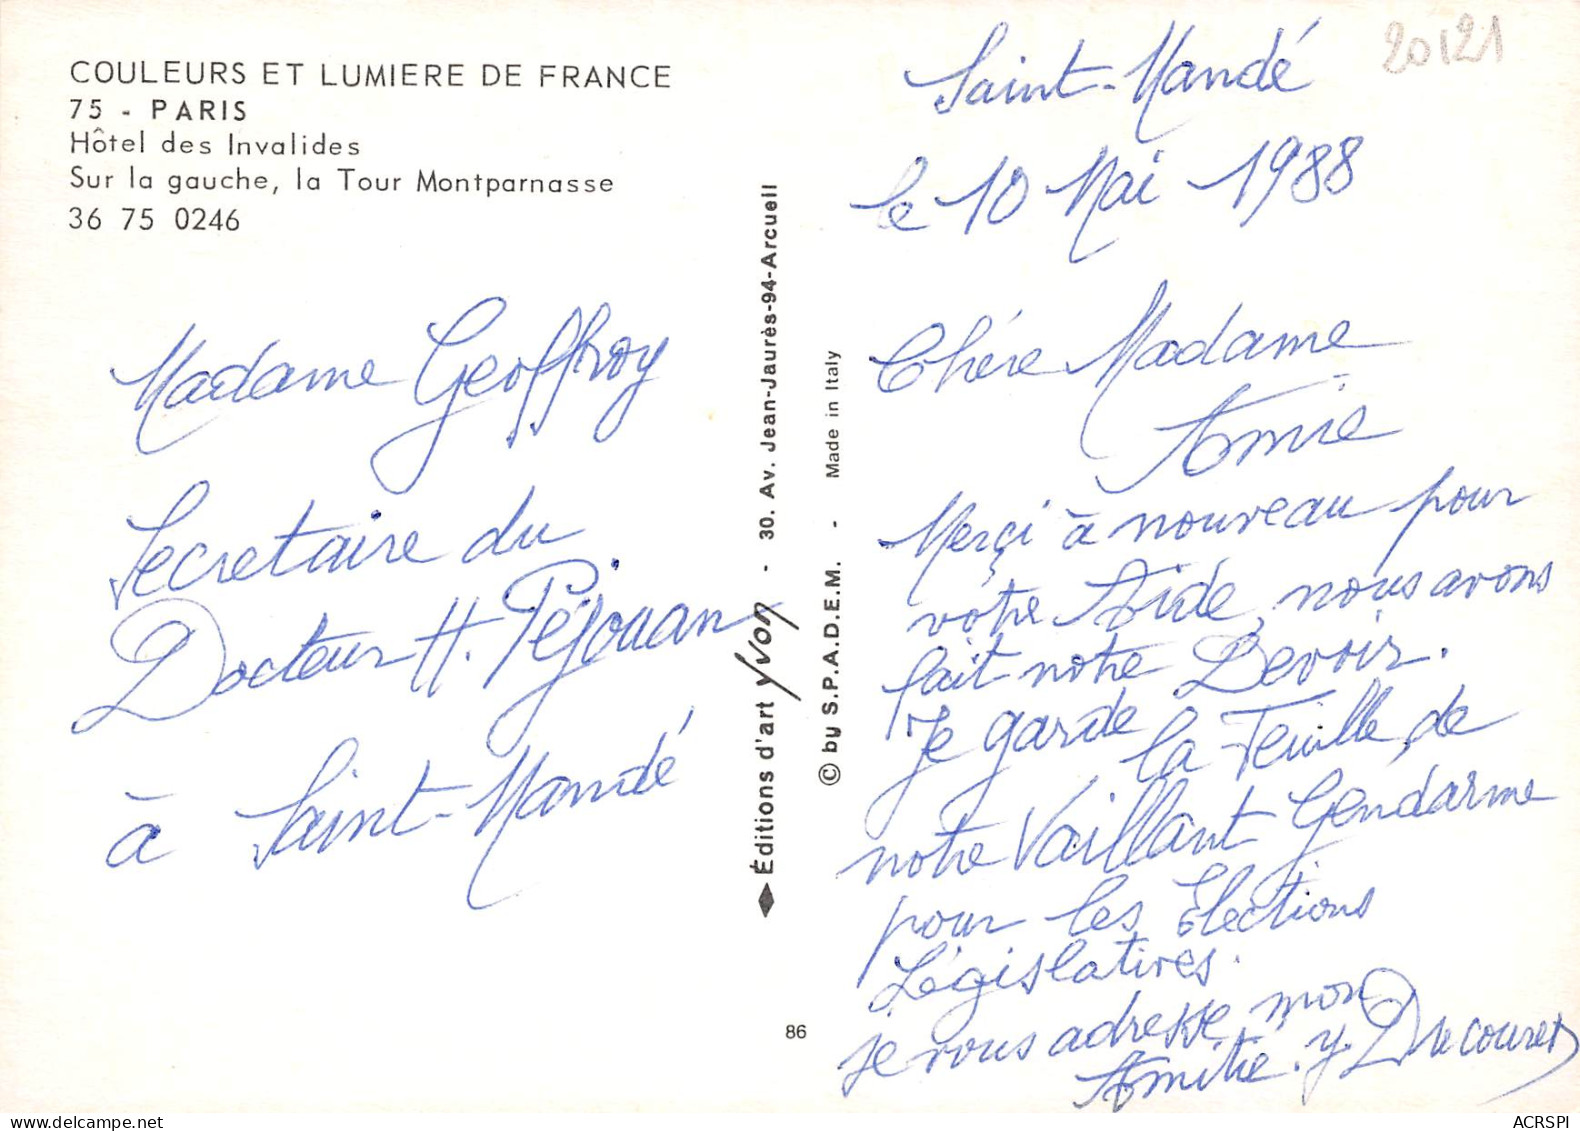 COULEURS ET LUMIERE DE FRANCE
75 - PARIS
Hôtel des Invalides
Sur la gauche, la Tour Montparnasse
36 75 0246
Madame Geoffroy
Secretaire du
Docteur H. Péjouan
à Saint-Mandé
Éditions d'art Yvon - 30. Av. Jean-Jaurès-94-Arcueil
© by S.P.A.D.E.M. - Made in Italy
86
20121
Saint-Mandé
le 10 Mai 1988
Chére Madame
Amie
Merçi à nouveau pour
votre Aide, nous avons
fait notre Devoir.
Je garde la Feuille de
notre Vaillant Gendarme
pour les Élections
Législatives.
je vous adresse mon
Amitié. Y.
ACRSPI